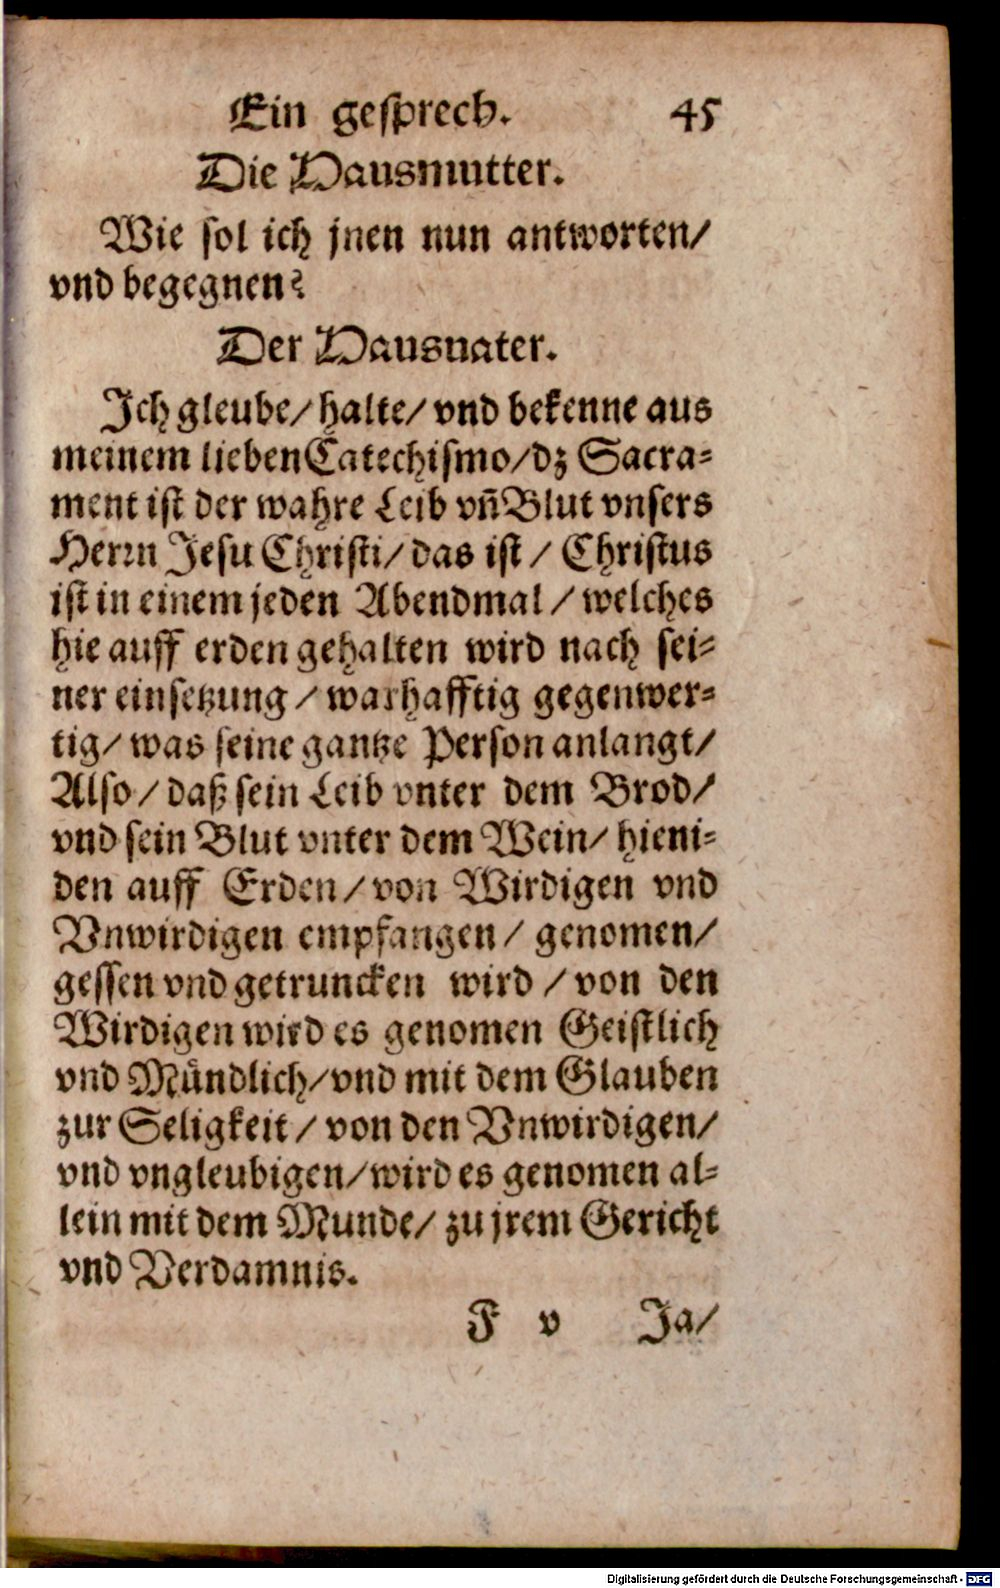 Ein gesprech. 45
Die Hausmutter.
Wie sol ich jnen nun antworten/
vnd begegnen?
Der Hausuater.
Ich gleube/ halte/ vnd bekenne aus
meinem lieben Catechismo/ dz Sacra⸗
ment ist der wahre Leib vñ Blut vnsers
Herrn Jesu Christi/ das ist/ Christus
ist in einem jeden Abendmal/ welches
hie auff erden gehalten wird nach sei⸗
ner einsetzung/ warhafftig gegenwer⸗
tig/ was seine gantze Person anlangt/
Also/ daß sein Leib vnter dem Brod/
vnd sein Blut vnter dem Wein/ hieni⸗
den auff Erden/ von Wirdigen vnd
Vnwirdigen empfangen/ genomen/
gessen vnd getruncken wird/ von den
Wirdigen wird es genomen Geistlich
vnd Mündlich/ vnd mit dem Glauben
zur Seligkeit/ von den Vnwirdigen/
vnd vngleubigen/ wird es genomen al⸗
lein mit dem Munde/ zu jrem Gericht
vnd Verdamnis.
F v Ja/
Digitalisierung gefördert durch die Deutsche Forschungsgemeinschaft - DFG